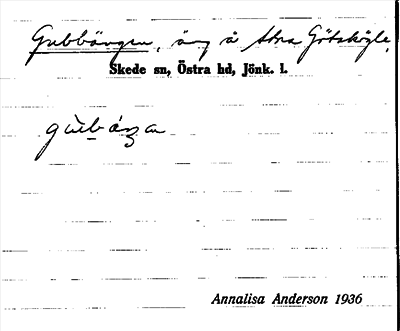 Gubbängen, äng å Stora Götsböle,
Skede sn, Östra hd, Jönk. l.
Annalisa Anderson 1936